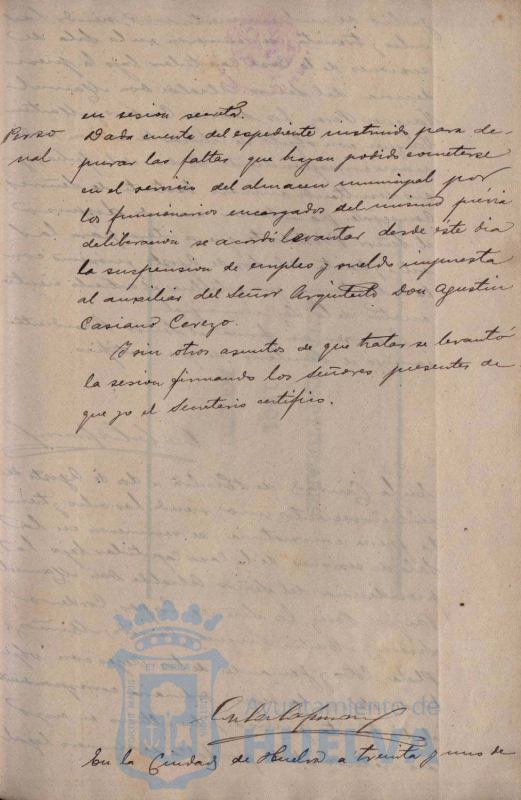 en sesion secreta.
Perso
nal
Dada cuenta del espediente instruido para de-
purar las faltas que hayan podido cometerse
en el servicio del almacen municipal por
los funcionarios encargados del mismo prévia
deliberacion se acordó levantar desde este dia
la suspension de empleo y sueldo impuesta
al auxiliar del Señor Arquitecto Don Agustin
Casiano Cerezo.
Y sin otros asuntos de que tratar se levantó
la sesion firmando los Señores presentes de
que yo el Secretario certifico.
Ayuntamiento de
HUELVA
En la Ciudad de Huelva a treinta y uno de